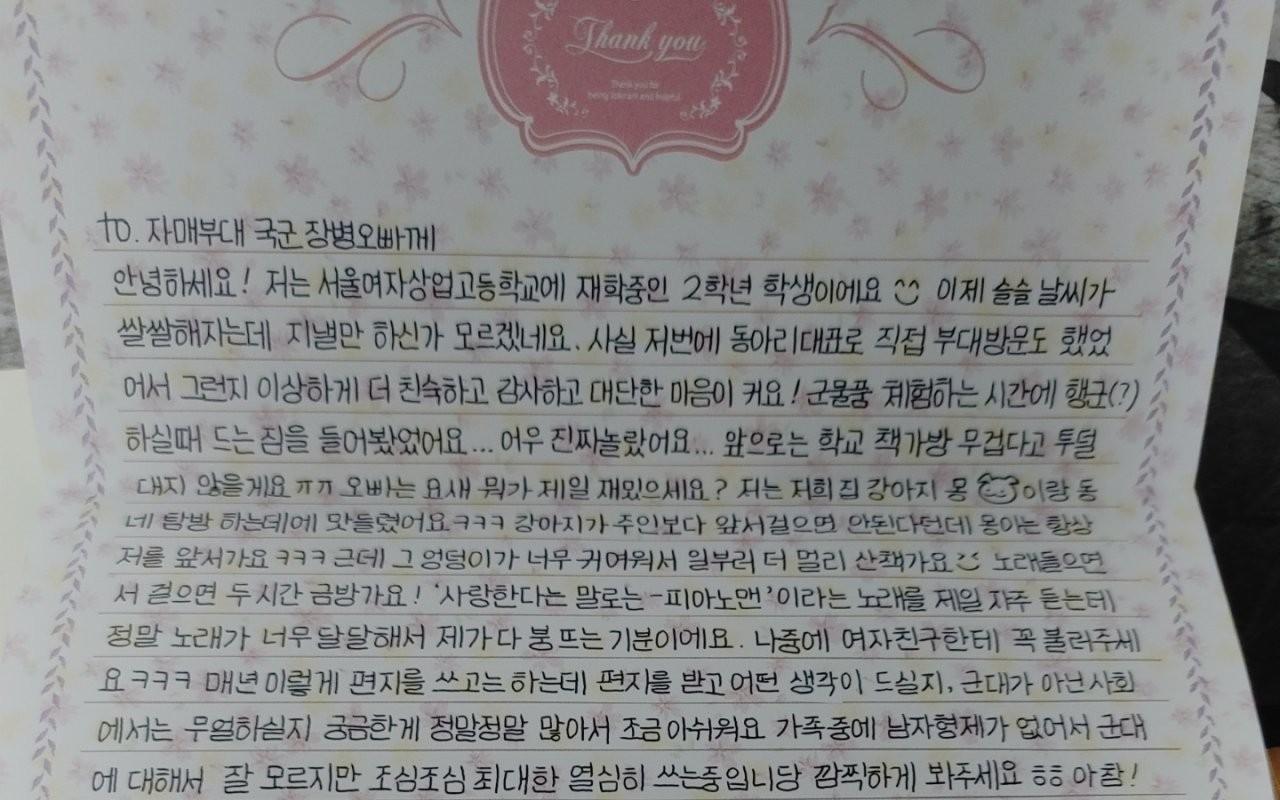 Thank you
Thank you for
being tolerant and helpful
to. 자매부대 국군 장병오빠께
안녕하세요! 저는 서울여자상업고등학교에 재학중인 2학년 학생이에요 이제 슬슬 날씨가
쌀쌀해지는데 지낼만 하신가 모르겠네요. 사실 저번에 동아리대표로 직접 부대방문도 했었
어서 그런지 이상하게 더 친숙하고 감사하고 대단한 마음이 커요! 군물품 체험하는 시간에 행군(?)
하실때 드는 짐을 들어봤었어요... 어우 진짜놀랐어요... 앞으로는 학교 책가방 무겁다고 투덜
대지 않을게요ㅠㅠ 오빠는 요새 뭐가 제일 재밌으세요? 저는 저희집 강아지 몽이랑 동
네 탐방 하는데에 맛들렸어요ㅋㅋㅋ 강아지가 주인보다 앞서걸으면 안된다던데 몽이는 항상
저를 앞서가요 ㅋㅋㅋ 근데 그 엉덩이가 너무 귀여워서 일부러 더 멀리 산책가요 노래들으면
서 걸으면 두시간 금방가요! '사랑한다는 말로는-피아노맨'이라는 노래를 제일 자주 듣는데
정말 노래가 너무 달달해서 제가 다 붕뜨는 기분이에요. 나중에 여자친구한테 꼭 불러주세
요ㅋㅋㅋ 매년 이렇게 편지를 쓰고는 하는데 편지를 받고 어떤 생각이 드실지, 군대가 아닌 사회
에서는 무얼하실지 궁금한게 정말정말 많아서 조금 아쉬워요 가족중에 남자형제가 없어서 군대
에 대해서 잘 모르지만 조심조심 최대한 열심히 쓰는중입니당 깜찍하게 봐주세요 ㅎㅎ 아참!